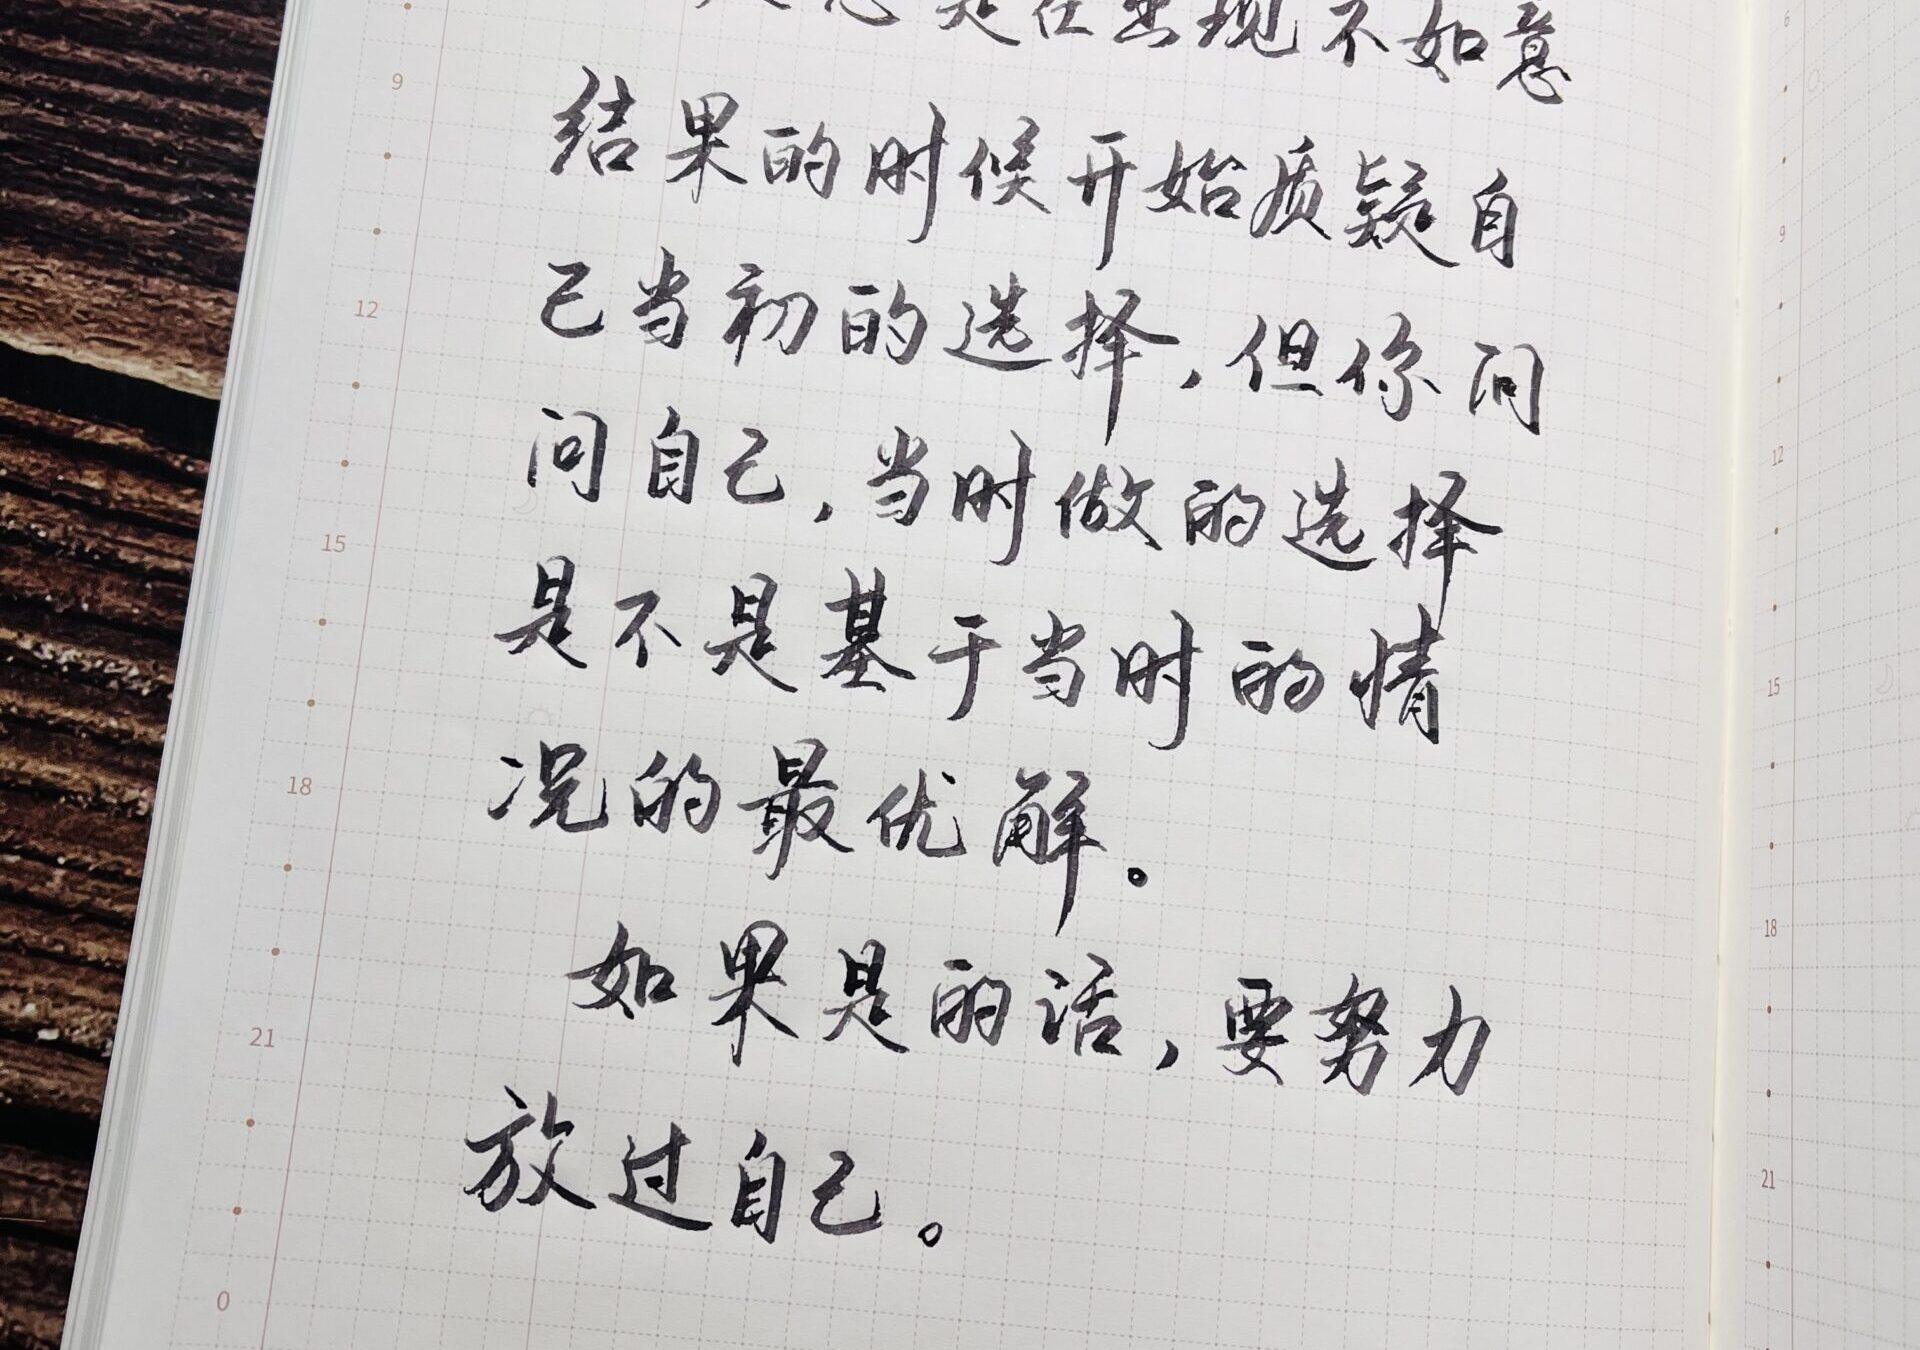 是在出现不如意
结果的时候开始质疑自
己当初的选择，但你问
问自己，当时做的选择
是不是基于当时的情
况的最优解。
如果是的话，要努力
放过自己。
9
12
15
18
21
0
6
9
12
15
18
21